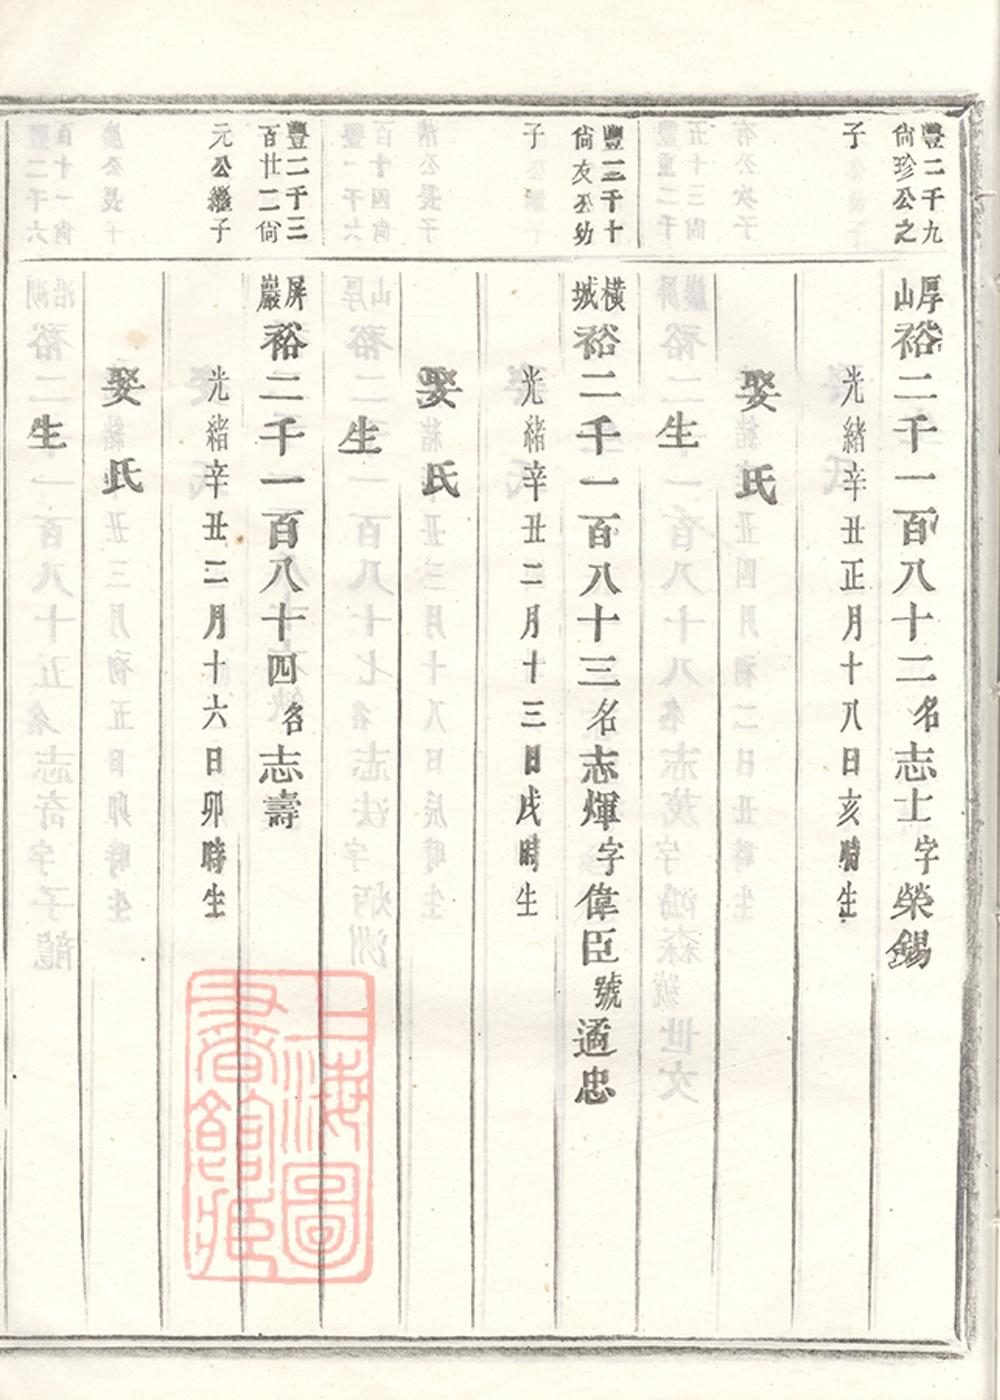 豐二千九
尙珍公之
子
厚山裕二千一百八十二名志士字榮錫
光緒辛丑正月十八日亥時生
娶氏
生
豐二千十
尙友公幼
子
橫城裕二千一百八十三名志煇字偉臣號遹忠
光緒辛丑二月十三日戌時生
娶氏
生
豐二千三
百廿二尙
元公繼子
屏巖裕二千一百八十四名志壽
光緒辛丑二月十六日卯時生
娶氏
生
上海圖
書館藏